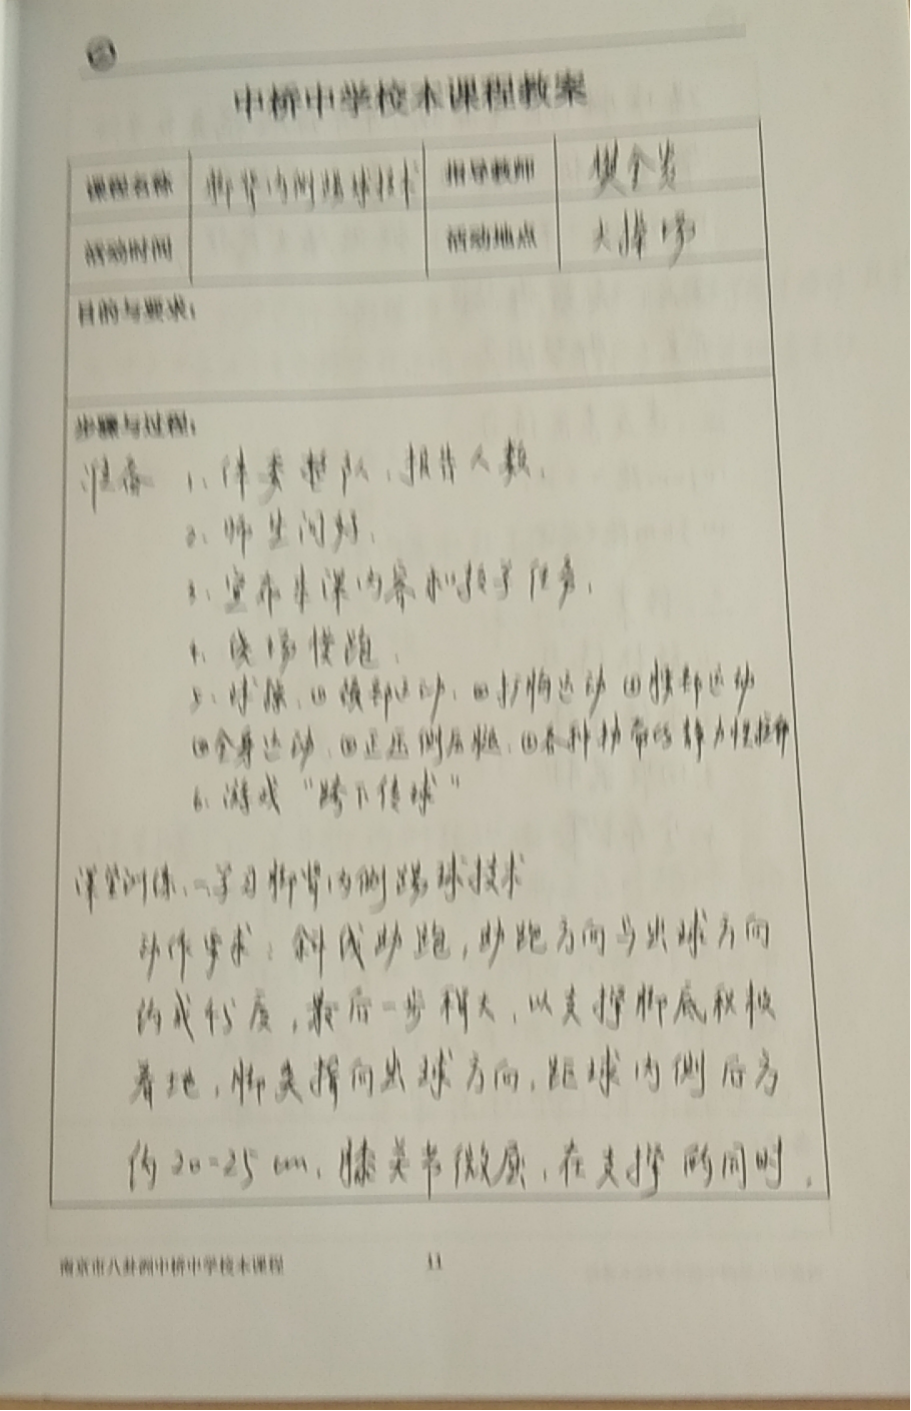 中桥中学校本课程教案
课程名称 脚背内侧踢球技术 指导教师 樊金
活动时间 活动地点 大操场
目的与要求:
步骤与过程:
准备 1、体委整队、报告人数。
2、师生问好。
3、宣布本课内容和教学任务。
4、绕场慢跑。
5、球操、①颈部运动、②扩胸运动 ③腰部运动
④全身运动、⑤正压侧压腿、⑥各种韧带的静力性拉伸
6、游戏“跨下传球”
课堂训练、一学习脚背内侧踢球技术
动作要求:斜线助跑,助跑方向与出球方向
约成45度,最后一步稍大,以支撑脚底积极
着地,脚尖指向出球方向,距球内侧后方
约20-25cm,膝关节微屈,在支撑的同时,
南京市八卦洲中桥中学校本课程 11